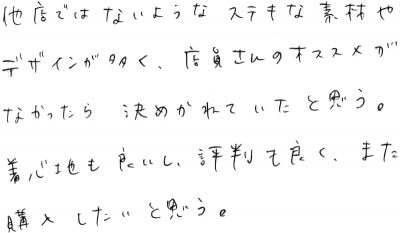 他店ではないようなステキな素材や
デザインが多く、店員さんのオススメが
なかったら 決めかねていたと思う。
着心地も良いし、評判も良く、また
購入したいと思う。